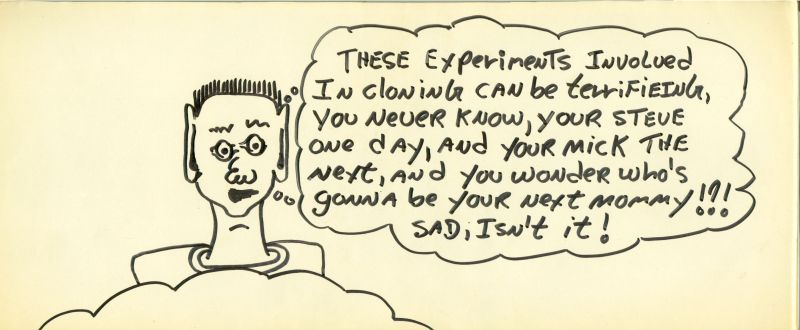 THESE Experiments Involved
In cloning can be terrifieing,
you never know, your STEVE
one day, and your mick THE
next, and you wonder who's
gonna be your next mommy!?!!
SAD, Isn't it!